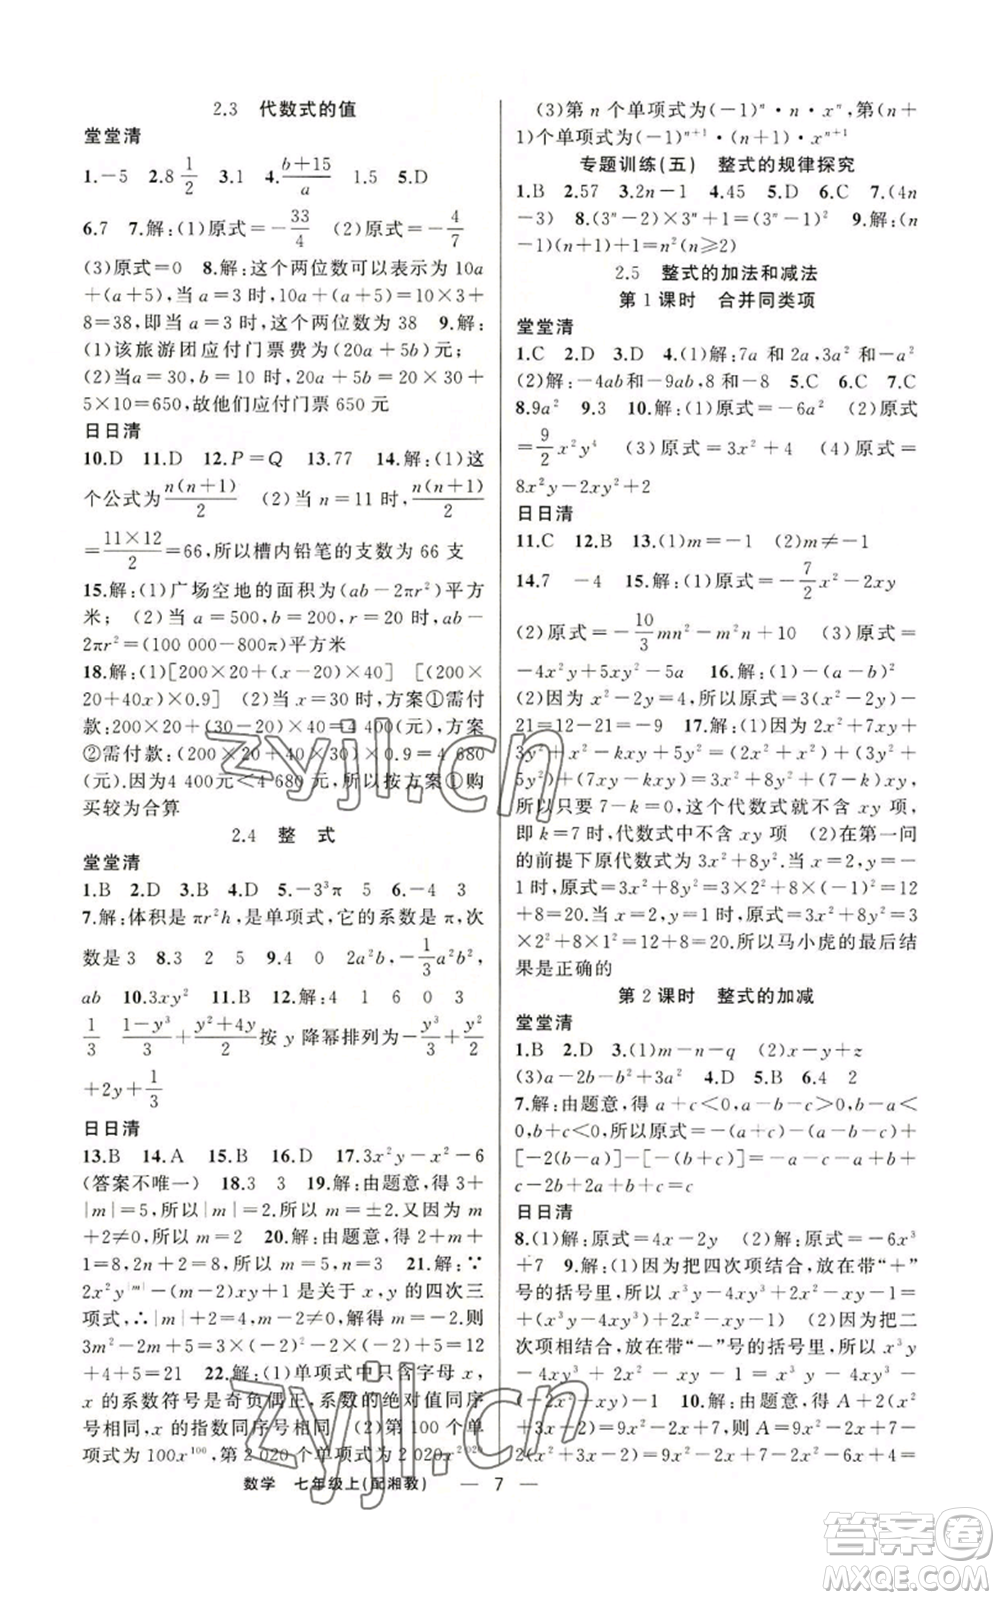 2.3 代数式的值
堂堂清
1.-5 2.8 1/2 3.1 4.(b+15)/a 1.5 5.D
6.7 7.解:(1)原式=-33/4 (2)原式=-4/7
(3)原式=0 8.解:这个两位数可以表示为 10a
+(a+5),当 a=3 时,10a+(a+5)=10×3+
8=38,即当 a=3 时,这个两位数为 38 9.解:
(1)该旅游团应付门票费为(20a+5b)元;
(2)当 a=30,b=10 时,20a+5b=20×30+
5×10=650,故他们应付门票 650 元
日日清
10.D 11.D 12.P=Q 13.77 14.解:(1)这
个公式为 n(n+1)/2 (2)当 n=11 时,n(n+1)/2
=11×12/2=66,所以槽内铅笔的支数为 66 支
15.解:(1)广场空地的面积为(ab-2πr²)平方
米; (2)当 a=500,b=200,r=20 时,ab-
2πr²=(100 000-800π)平方米
18.解:(1)[200×20+(x-20)×40] [(200×
20+40x)×0.9] (2)当 x=30 时,方案①需付
款:200×20+(30-20)×40=4 400(元),方案
②需付款:(200×20+40×30)×0.9=4 680
(元).因为4 400元<4 680元,所以按方案①购
买较为合算
2.4 整 式
堂堂清
1.B 2.D 3.B 4.D 5.-3³π 5 6.-4 3
7.解:体积是 πr²h,是单项式,它的系数是 π,次
数是 3 8.3 2 5 9.4 0 2a²b -1/3a²b²,
ab 10.3xy² 11.B 12.解:4 1 6 3
1/3 (1-y³)/3+(y²+4y)/2按 y 降幂排列为-y³/3+y²/2
+2y+1/3
日日清
13.B 14.A 15.B 16.D 17.3x²y-x²-6
(答案不唯一) 18.3 3 19.解:由题意,得 3+
|m|=5,所以|m|=2,所以 m=±2.又因为
m+2≠0,所以 m=2 20.解:由题意,得 2+m+
1=8,2n+2=8,所以 m=5,n=3 21.解:∵
2x²y|m|-(m-2)xy+1 是关于 x,y 的四次三
项式,∴|m|+2=4,m-2≠0,∴m=-2.则
3m²-2m+5=3×(-2)²-2×(-2)+5=12
+4+5=21 22.解:(1)单项式中只含字母 x,
x 的系数符号是奇负偶正,系数的绝对值同序
号相同,x 的指数同序号相同 (2)第 100 个单
项式为100x¹⁰⁰,第 2 020 个单项式为 2 020x²⁰²⁰
(3)第 n 个单项式为(-1)ⁿ·n·xⁿ,第(n+
1)个单项式为(-1)ⁿ⁺¹·(n+1)·xⁿ⁺¹
专题训练(五) 整式的规律探究
1.B 2.57 3.2n-1 4.45 5.D 6.C 7.(4n
-3) 8.(3ⁿ-2)×3ⁿ+1=(3ⁿ-1)² 9.解:(n
-1)(n+1)+1=n²(n≥2)
2.5 整式的加法和减法
第 1 课时 合并同类项
堂堂清
1.C 2.D 3.D 4.(1)解:7a 和 2a,3a² 和-a²
(2)解:-4ab和-9ab,8 和-8 5.C 6.C 7.C
8.9a² 9.3 10.解:(1)原式=-6a² (2)原式
=9/2x²y⁴ (3)原式=3x²+4 (4)原式=
8x²y-2xy²+2
日日清
11.C 12.B 13.(1)m=-1 (2)m≠-1
14.7 -4 15.解:(1)原式=-7/2x²-2xy
(2)原式=-10/3mn²-m²-m+10 (3)原式=
-4x²y-5x²-5a 16.解:(1)-(a-b)²
(2)因为 x²-2y=4,所以原式=3(x²-2y)-
21=12-21=-9 17.解:(1)因为 2x²+7xy+
3y²+x²-kxy+5y²=(2x²+x²)+(3y²+
5y²)+(7xy-kxy)=3x²+8y²+(7-k)xy,
所以只要 7-k=0,这个代数式就不含 xy 项,
即 k=7 时,代数式中不含 xy 项 (2)在第一问
的前提下原代数式为 3x²+8y².当 x=2,y=-
1 时,原式=3x²+8y²=3×2²+8×(-1)²=12
+8=20.当 x=2,y=1 时,原式=3x²+8y²=3
×2²+8×1²=12+8=20.所以马小虎的最后结
果是正确的
第 2 课时 整式的加减
堂堂清
1.B 2.D 3.(1)m-n-q (2)x-y+z
(3)a-2b-b²+3a² 4.D 5.B 6.4 2
7.解:由题意,得 a+c<0,b-c>0,b-a<
0,a+b+c<0,所以原式=-(a+c)+(b-c)+
日日清
8.(1)解:原式=4x-2y (2)解:原式=-6x³
+7 9.解:(1)因为把四次项结合,放在带“+”
号的括号里,所以 x³y-4xy³+2x²-xy-1=
+(x³y-4xy³)+2x²-xy-1 (2)因为把二
次项相结合,放在带“-”号的括号里,所以 x³y
-4xy³+2x²-xy-1=x³y-4xy³-
(-2x²+xy)-1 10.解:由题意,得 A+2(x²+
3x-2)=9x²-2x+7,则 A=9x²-2x+7-
数学 七年级上(配湘教) — 7 —
zyjl.cn
zyjl.cn
答案圈
MXQE.COM